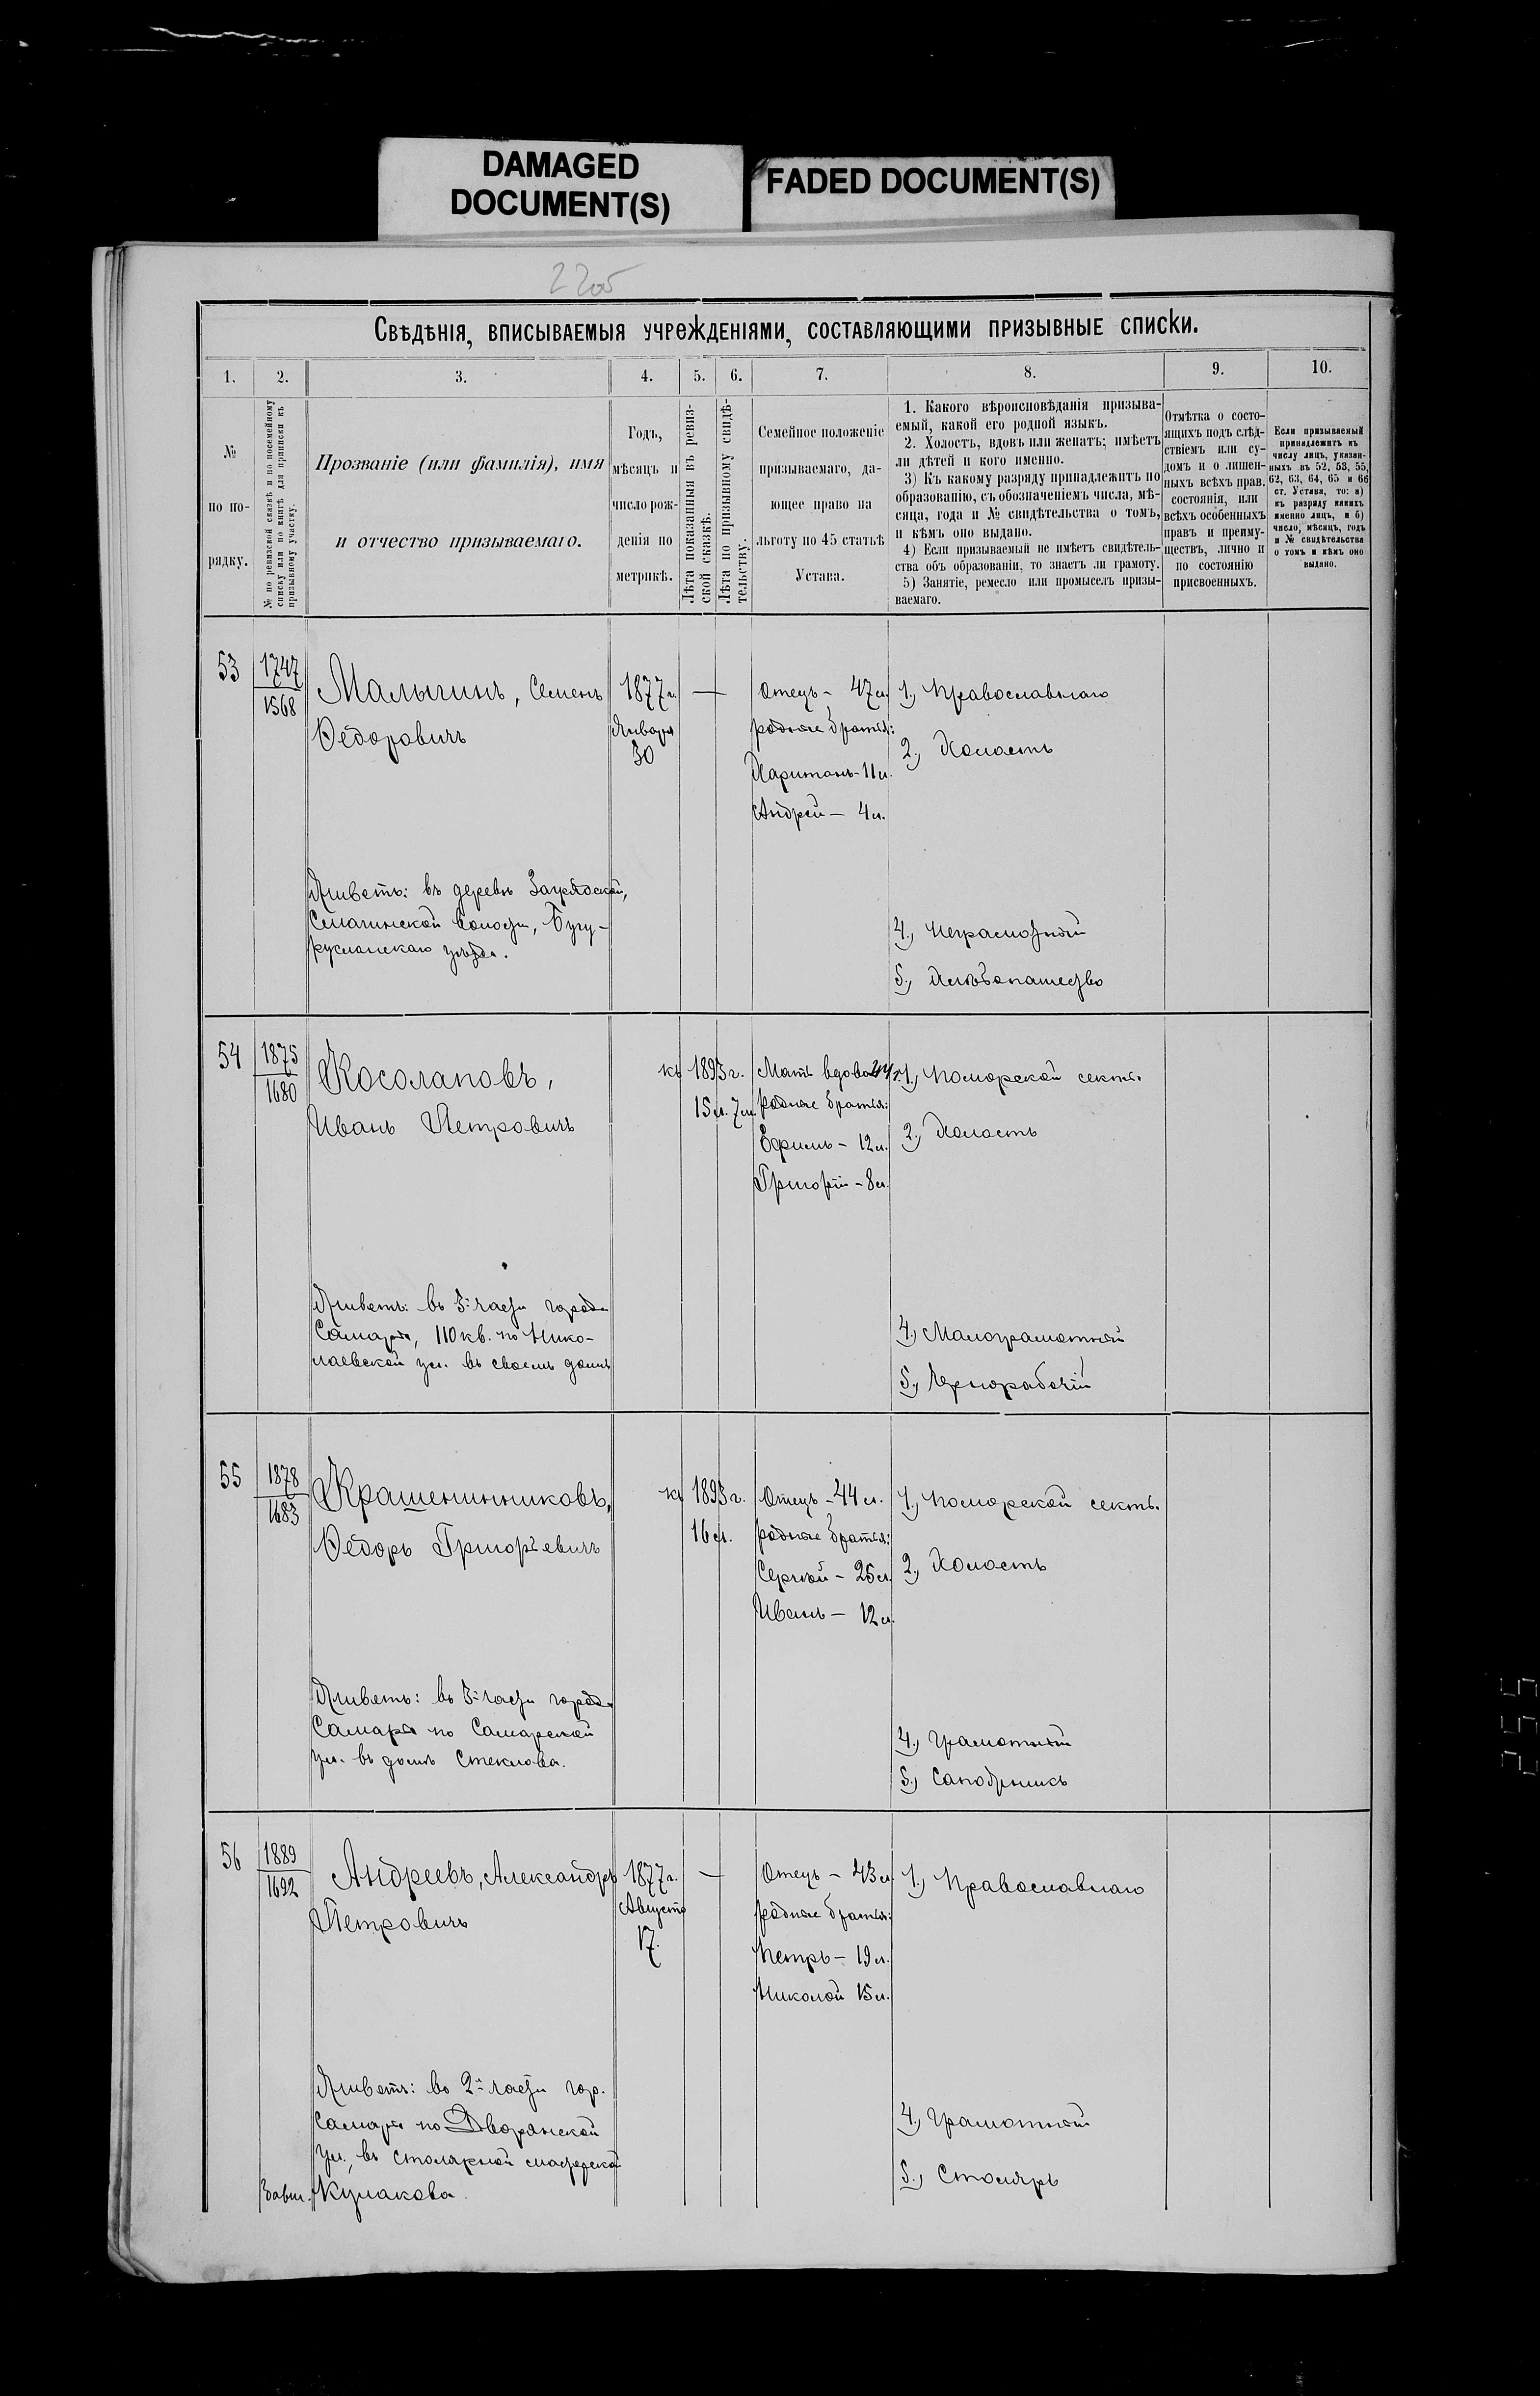 DAMAGED
DOCUMENT(S)
FADED DOCUMENT(S)
Свѣдѣнія, вписываемыя учрежденіями, составляющими призывные списки.
1. 2. 3. 4. 5. 6. 7. 8. 9. 10.
№
по по-
рядку.
№ по ревизской сказкѣ и по посемейному
списку или по книгѣ для приписки къ
призывному участку.
Прозваніе (или фамилія), имя
и отчество призываемаго.
Годъ,
мѣсяцъ и
число рож-
денія по
метрикѣ.
Лѣта показанныя въ ревиз-
ской сказкѣ.
Лѣта по призывному свидѣ-
тельству.
Семейное положеніе
призываемаго, да-
ющее право на
льготу по 45 статьѣ
Устава.
1. Какого вѣроисповѣданія призыва-
емый, какой его родной языкъ.
2. Холостъ, вдовъ или женатъ; имѣетъ
ли дѣтей и кого именно.
3) Къ какому разряду принадлежитъ по
образованію, съ обозначеніемъ числа, мѣ-
сяца, года и № свидѣтельства о томъ,
и кѣмъ оно выдано.
4) Если призываемый не имѣетъ свидѣтель-
ства объ образованіи, то знаетъ ли грамоту.
5) Занятіе, ремесло или промыселъ призы-
ваемаго.
Отмѣтка о состо-
ящихъ подъ слѣд-
ствіемъ или су-
домъ и о лишен-
ныхъ всѣхъ прав.
состоянія, или
всѣхъ особенныхъ
правъ и преиму-
ществъ, лично и
по состоянію
присвоенныхъ.
Если призываемый
принадлежитъ къ
числу лицъ, указан-
ныхъ въ 52, 53, 55,
62, 63, 64, 65 и 66
ст. Устава, то: а)
къ разряду какихъ
именно лицъ, и б)
число, мѣсяцъ, годъ
и № свидѣтельства
о томъ и кѣмъ оно
выдано.
53
1747
1568
Малыгинъ, Семенъ
Ѳедоровичъ
1877 г.
Января
30
—
Отецъ - 47 л.
родные братья:
Харитонъ - 11 л.
Андрей — 4 л.
1., Православнаго
2., Холостъ
Живетъ: въ деревнѣ
волости, Бугу-
русланскаго уѣзда.
4., Неграмотный
5., Хлѣбопашество
54
1875
1680
Косолаповъ,
Иванъ Петровичъ
къ 1893 г.
15 л. 7 м.
Мать вдова
родные братья:
Ефимъ - 12 л.
Григорій - 8 л.
1., Поморской секты.
2., Холостъ
Живетъ: въ 3й части города
Самары, 110 кв. по Нико-
лаевской ул. въ своемъ домѣ
4., Малограмотный
5., Чернорабочій
55
1878
1683
Крашенинниковъ,
Ѳедоръ Григорьевичъ
къ 1893 г.
16 л.
Отецъ - 44 л.
родные братья:
Сергѣй - 25 л.
Иванъ — 12 л.
1., Поморской секты.
2., Холостъ
Живетъ: въ 3й части города
Самары по Самарской
ул. въ домѣ Стеклова.
4., Грамотный
5., Сапожникъ
56
1889
1692
Андреевъ, Александръ
Петровичъ
1877 г.
Августа
17.
—
Отецъ - 43 л.
родные братья:
Петръ - 19 л.
Николай 15 л.
1., Православнаго
Живетъ: во 2й части гор.
Самары по Дворянской
ул., въ столярной мастерской
Кулакова.
4., Грамотный
5., Столяръ
255